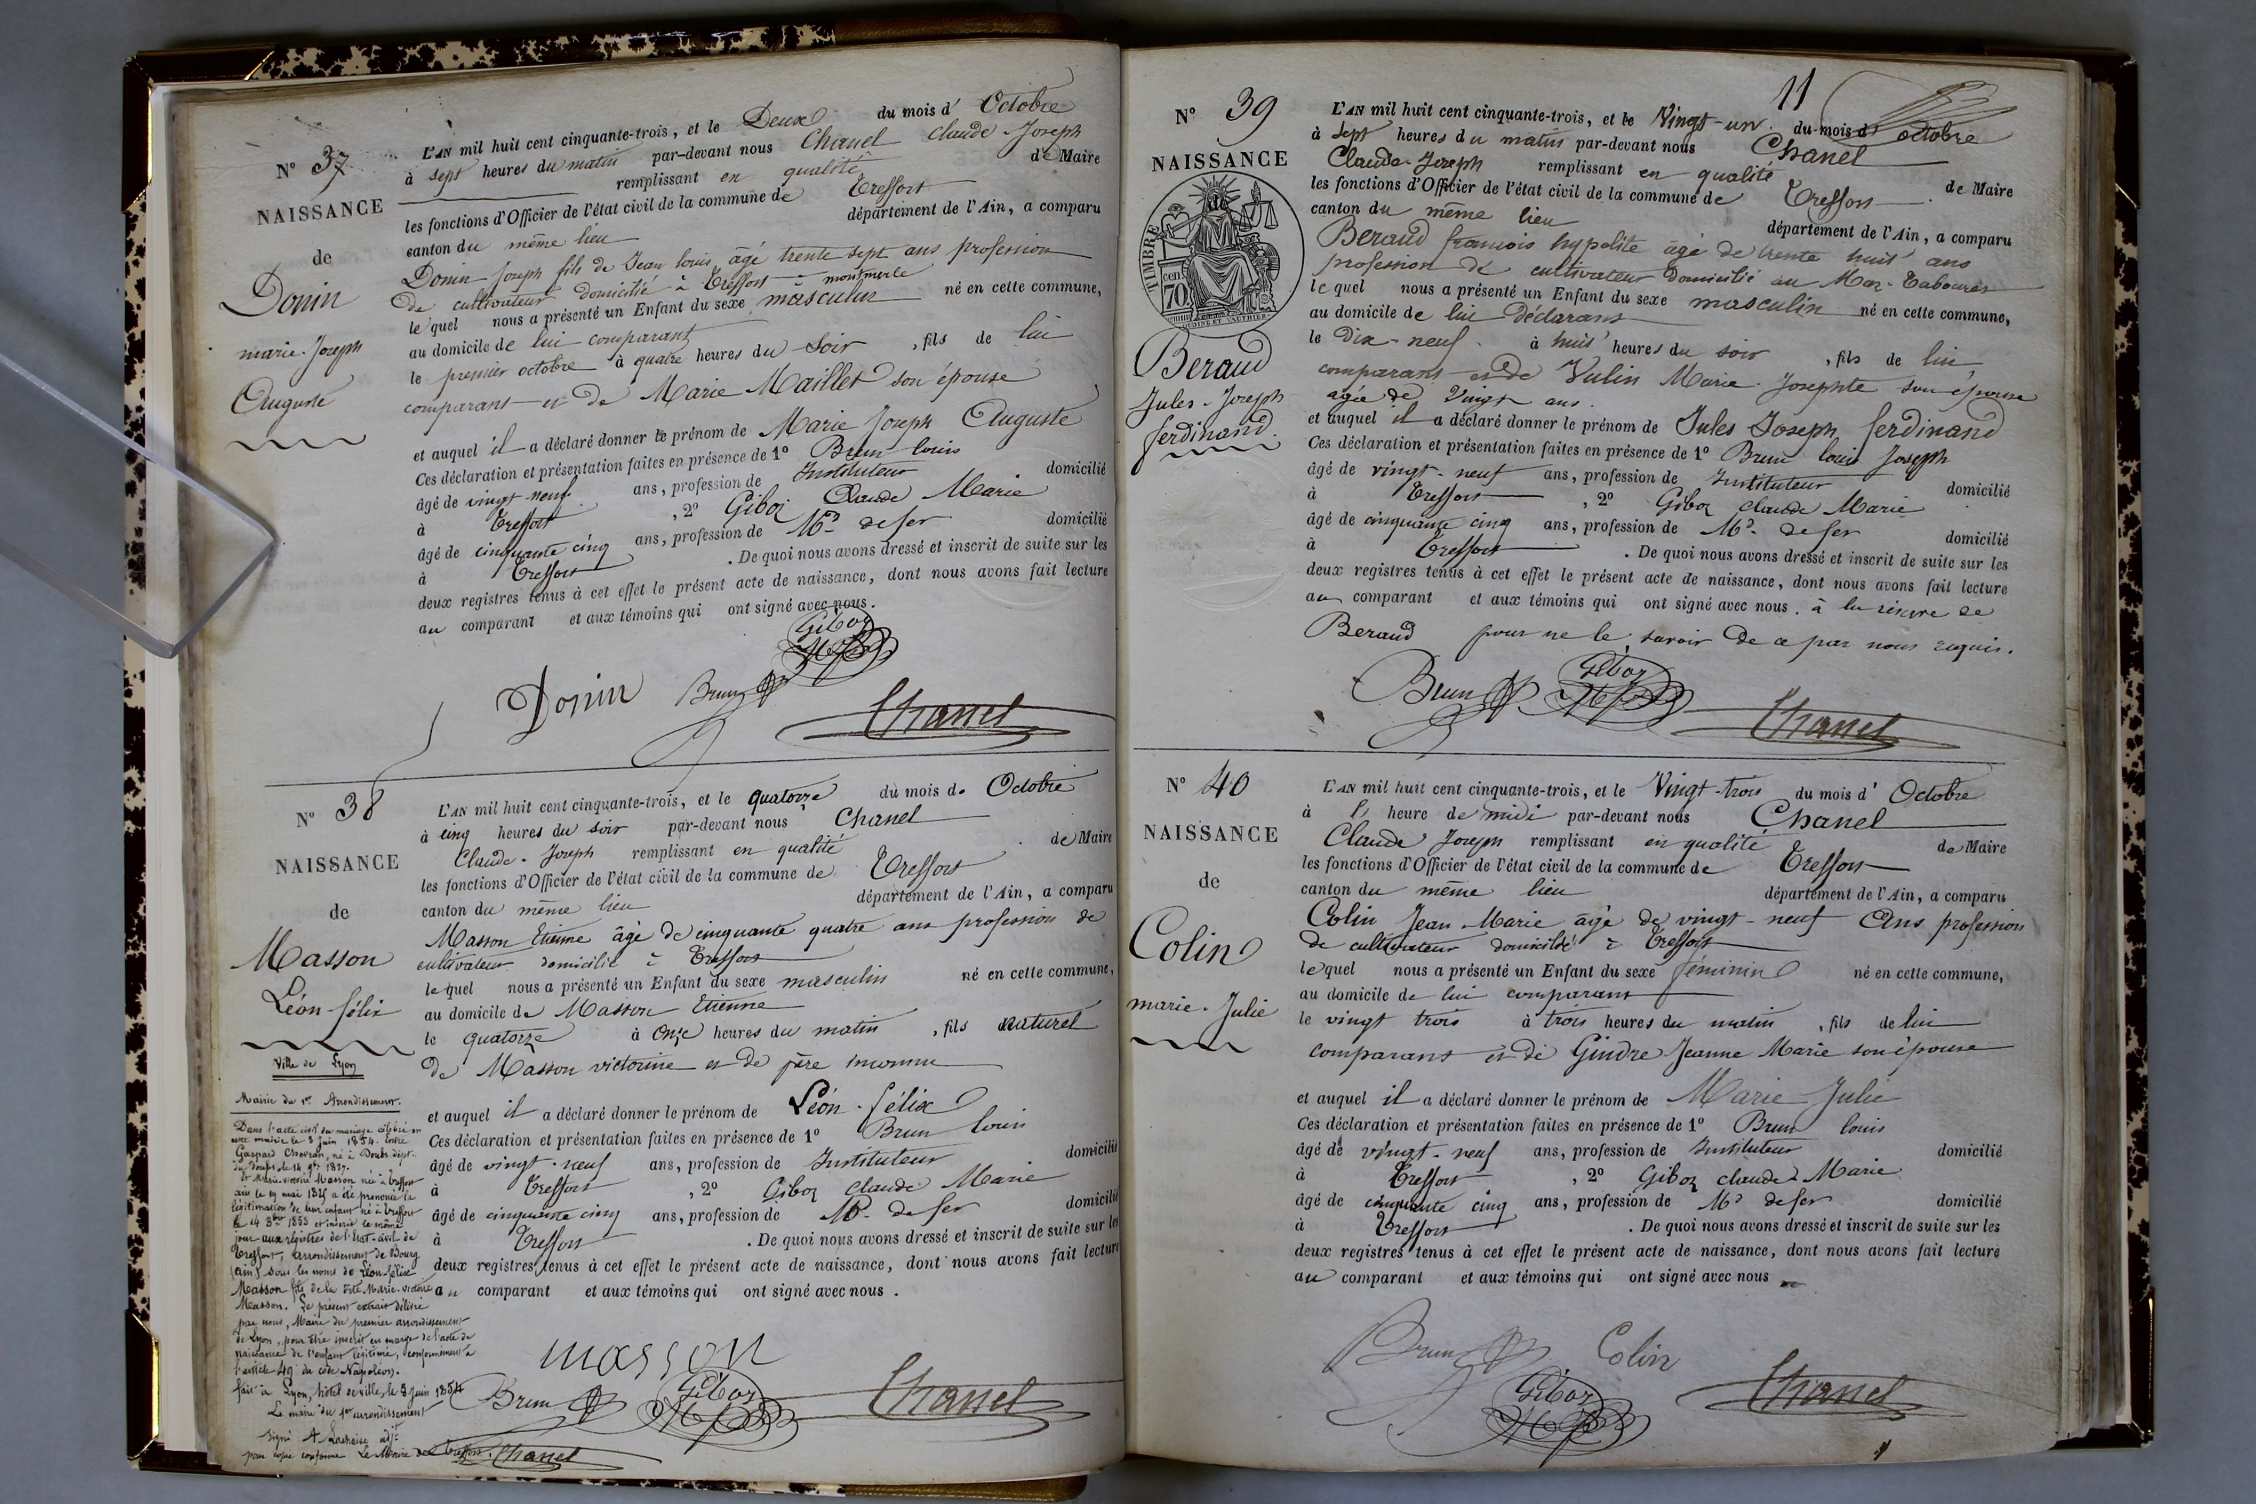 N° 37
NAISSANCE
de
Donin
marie. Joseph
Auguste
L'AN mil huit cent cinquante-trois, et le Deux du mois d' Octobre
à sept heures du matin par-devant nous Chanel Claude-Joseph
remplissant en qualité de Maire
les fonctions d'Officier de l'état civil de la commune de Treffort
canton du même lieu département de l'Ain, a comparu
Donin Joseph fils de Jean louis âgé trente sept ans profession
De cultivateur domicilié à Treffort - montmerle
lequel nous a présenté un Enfant du sexe masculin né en cette commune,
au domicile de lui comparant
le premier octobre à quatre heures du soir, fils de lui
comparant et de Marie Maillet son épouse
et auquel il a déclaré donner le prénom de Marie Joseph Auguste
Ces déclaration et présentation faites en présence de 1° Brun louis
âgé de vingt-neuf ans, profession de Instituteur domicilié
à Treffort, 2° Giboz Claude Marie
âgé de cinquante cinq ans, profession de Md de fer domicilié
à Treffort. De quoi nous avons dressé et inscrit de suite sur les
deux registres tenus à cet effet le présent acte de naissance, dont nous avons fait lecture
au comparant et aux témoins qui ont signé avec nous.
Giboz
Donin Brun
Chanel
N° 38
NAISSANCE
de
Masson
Léon félix
L'AN mil huit cent cinquante-trois, et le quatorze du mois de Octobre
à cinq heures du soir par-devant nous Chanel
Claude. Joseph remplissant en qualité de Maire
les fonctions d'Officier de l'état civil de la commune de Treffort
canton du même lieu département de l'Ain, a comparu
Masson Etienne âgé de cinquante quatre ans profession de
cultivateur domicilié à Treffort
lequel nous a présenté un Enfant du sexe masculin né en cette commune,
au domicile de Masson Etienne
le quatorze à onze heures du matin, fils naturel
de Masson victorine et de père inconnu
et auquel il a déclaré donner le prénom de Léon. félix
Ces déclaration et présentation faites en présence de 1° Brun louis
âgé de vingt-neuf ans, profession de Instituteur domicilié
à Treffort, 2° Giboz Claude Marie
âgé de cinquante cinq ans, profession de Md de fer domicilié
à Treffort. De quoi nous avons dressé et inscrit de suite sur les
deux registres tenus à cet effet le présent acte de naissance, dont nous avons fait lecture
au comparant et aux témoins qui ont signé avec nous.
masson
Brun Giboz Chanel
Ville de Lyon
Mairie du 1er Arrondissement.
Dans l'acte civil du mariage célébré en
notre mairie le 3 Juin 1854 entre
Gaspard né à Doubs dépt.
du Doubs le 14 1827.
Et Marie-victoire Masson née à Treffort
ain le 19 mai 1825 a été prononcée la
légitimation de leur enfant né à Treffort
le 14 8bre 1853 et inscrit le même
jour aux régistres de l'Etat-civil de
Treffort, arrondissement de Bourg
(ain) sous les noms de Léon-félix
Masson fils de la dite Marie-victoire
Masson. Le présent extrait délivré
par nous, Maire du premier arrondissement
de Lyon, pour être inscrit en marge de l'acte de
naissance de l'enfant légitimé, conformément à
l'article 49 du code Napoléon.
fait à Lyon, hôtel de ville, le 3 juin 1854
Le maire du 1er arrondissement
signé A. adjt
pour copie conforme Le Maire de Treffort. Chanel
11
N° 39
NAISSANCE
de
TIMBRE
70 cen
Beraud
Jules. Joseph
ferdinand.
L'AN mil huit cent cinquante-trois, et le Vingt-un du mois d' octobre
à sept heures du matin par-devant nous Chanel
Claude-Joseph remplissant en qualité de Maire
les fonctions d'Officier de l'état civil de la commune de Treffort
canton du même lieu département de l'Ain, a comparu
Beraud francois hypolite âgé de trente huit ans
profession de cultivateur domicilié au Mas-Tabouret
lequel nous a présenté un Enfant du sexe masculin né en cette commune,
au domicile de lui déclarant
le Dix-neuf à huit heures du soir, fils de lui
comparant et de Vulin Marie. Josephte son épouse
agée de Vingt ans.
et auquel il a déclaré donner le prénom de Jules Joseph ferdinand
Ces déclaration et présentation faites en présence de 1° Brun louis Joseph
âgé de vingt-neuf ans, profession de Instituteur domicilié
à Treffort, 2° Giboz Claude Marie
âgé de cinquante cinq ans, profession de Md de fer domicilié
à Treffort. De quoi nous avons dressé et inscrit de suite sur les
deux registres tenus à cet effet le présent acte de naissance, dont nous avons fait lecture
au comparant et aux témoins qui ont signé avec nous. à la réserve de
Beraud pour ne le savoir de ce par nous requis.
Brun Giboz
Chanel
N° 40
NAISSANCE
de
Colin
marie. Julie
L'AN mil huit cent cinquante-trois, et le Vingt-trois du mois d' Octobre
à l' heure de midi par-devant nous Chanel
Claude Joseph remplissant en qualité de Maire
les fonctions d'Officier de l'état civil de la commune de Treffort
canton du même lieu département de l'Ain, a comparu
Colin Jean Marie âgé de vingt-neuf Ans profession
de cultivateur domicilié à Treffort
lequel nous a présenté un Enfant du sexe féminin né en cette commune,
au domicile de lui comparant
le vingt trois à trois heures du matin, fils de lui
comparant et de Gindre Jeanne Marie son épouse
et auquel il a déclaré donner le prénom de Marie Julie
Ces déclaration et présentation faites en présence de 1° Brun louis
âgé de vingt-neuf ans, profession de Instituteur domicilié
à Treffort, 2° Giboz claude Marie
âgé de cinquante cinq ans, profession de Md de fer domicilié
à Treffort. De quoi nous avons dressé et inscrit de suite sur les
deux registres tenus à cet effet le présent acte de naissance, dont nous avons fait lecture
au comparant et aux témoins qui ont signé avec nous
Brun Colin
Giboz Chanel